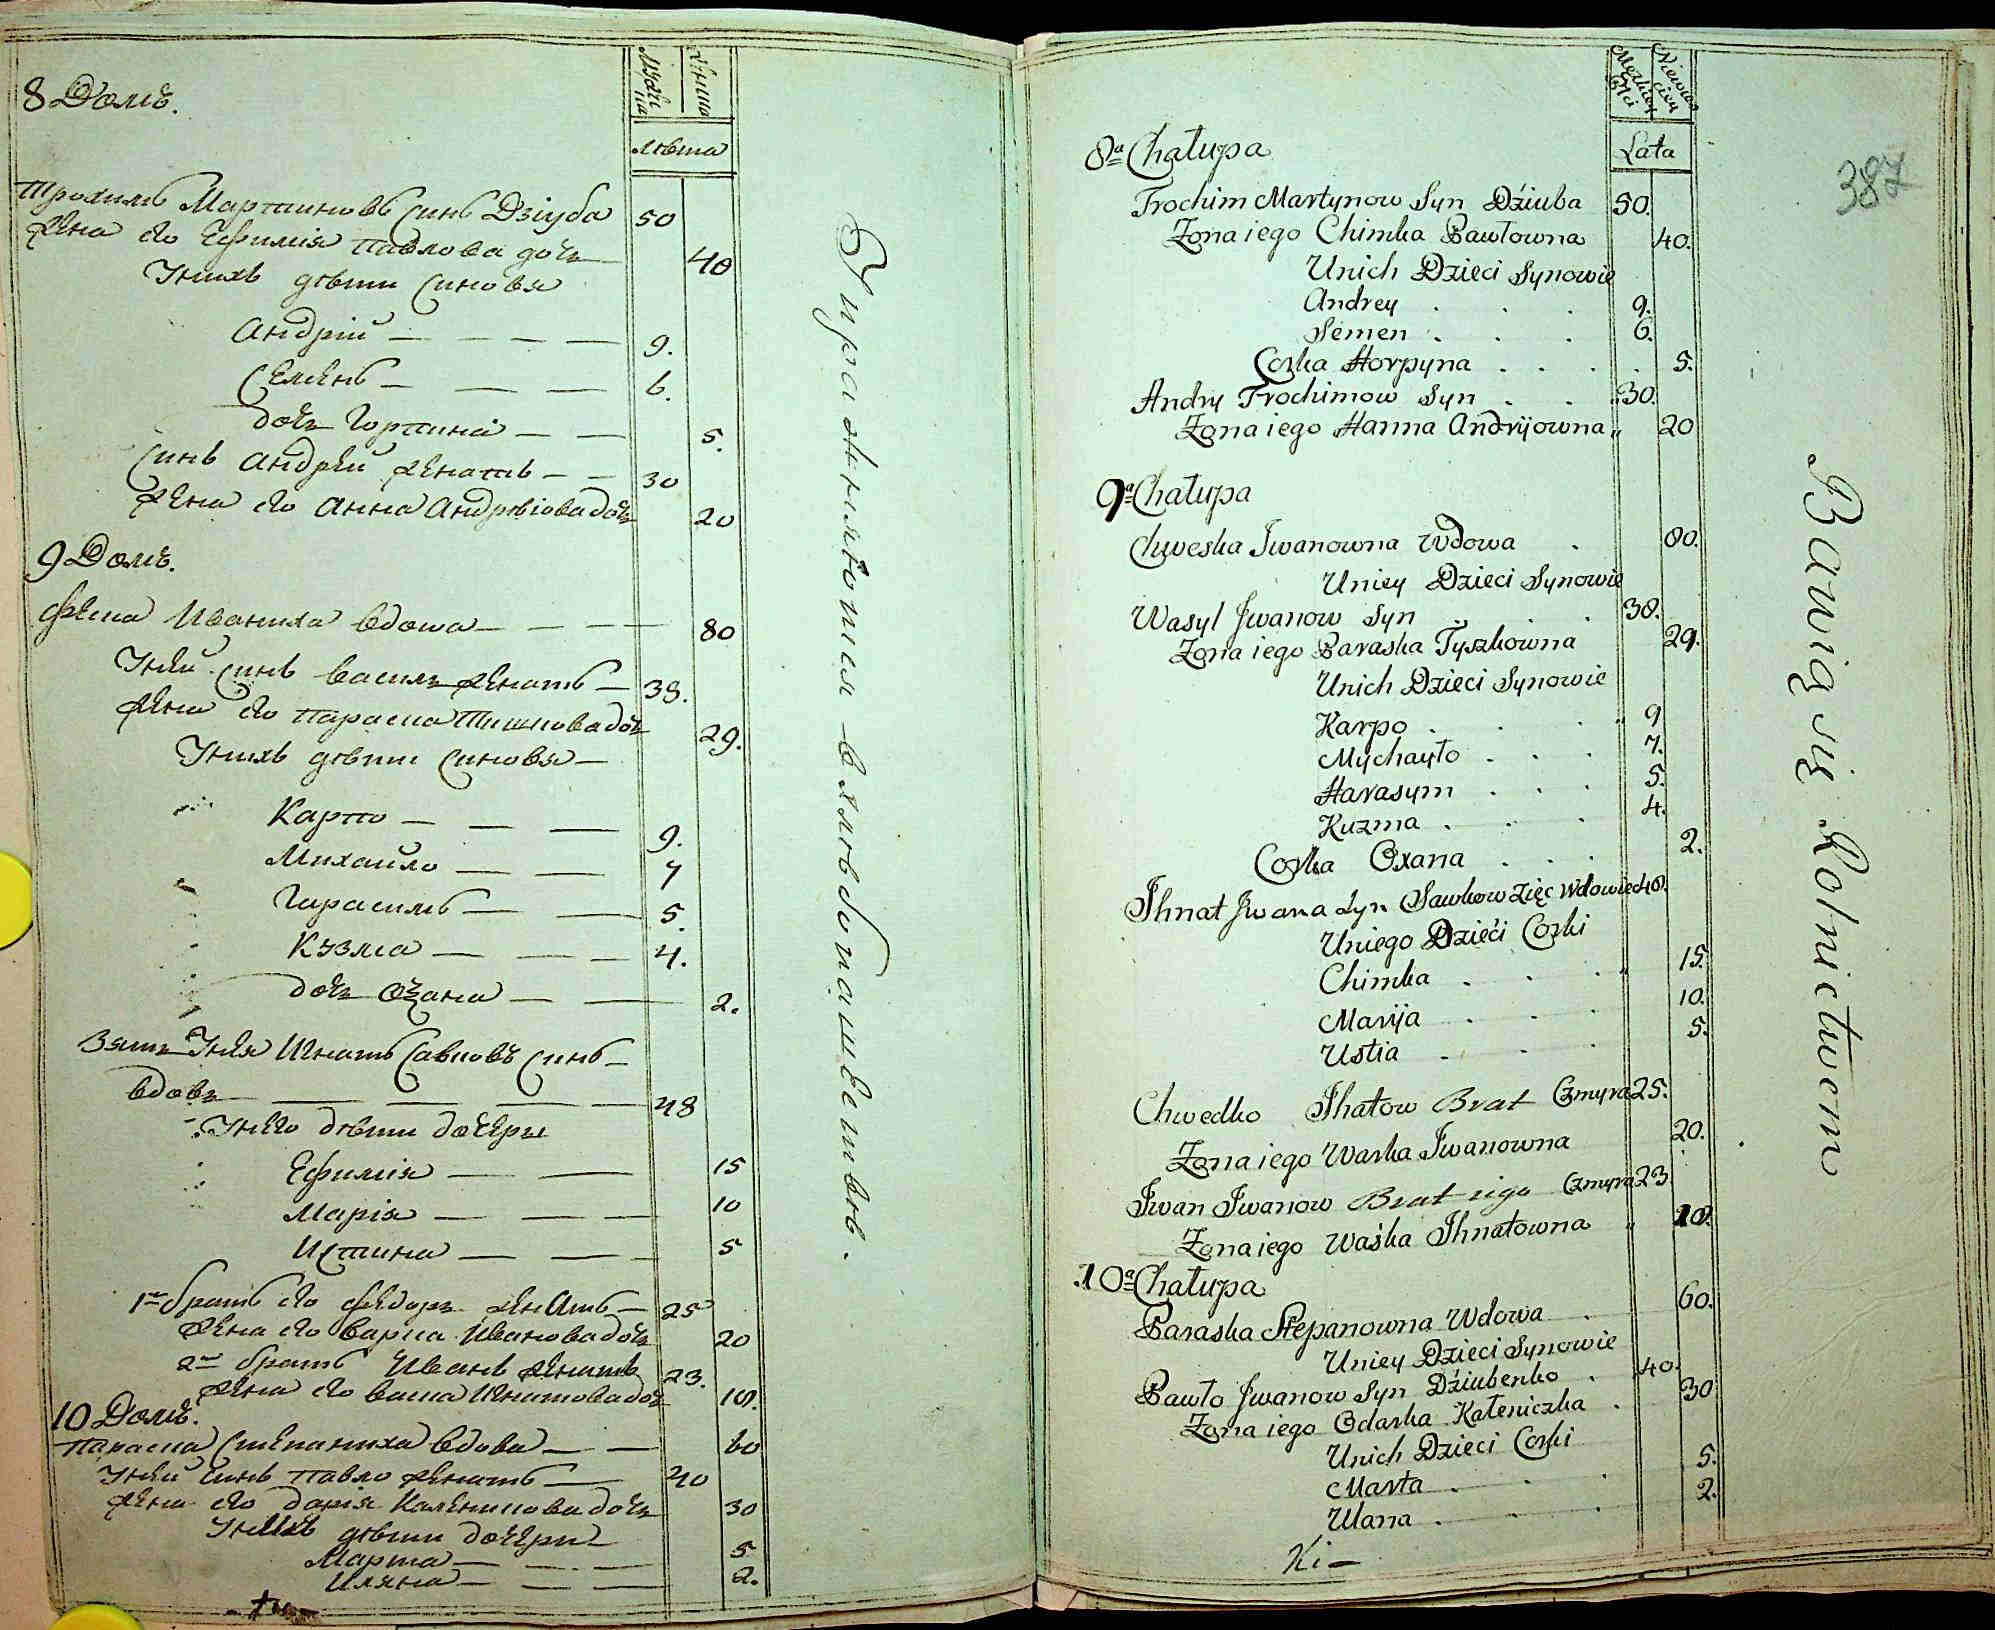 8 Домъ.
Мужеска
Женска
лѣта
Трохимъ Мартиновъ Синъ Дзіуба 50
Жена его Ефимія Павлова дочь 40
У нихъ дѣти Синовя
Андрій — — — — 9.
Семенъ — — — 6.
дочь Горпина — — 5.
Синъ Андрей женатъ — — 30
Жена его Анна Андрѣіова дочь 20
9 Домъ.
Феска Иваниха вдова — — — 80
У ней Синъ Василь женатъ — 38.
Жена его Параска Тишкова дочь 29.
У нихъ дѣти Синовя —
Карпо — — — 9.
Михайло — — 7
Гарасимъ — — 5.
Кузма — — — 4.
дочь Оѯана — — 2.
Зять У нея Игнатъ Савковъ Синъ —
вдовъ — — — — 48
У него дѣти дочеры
Ефимія — — 15
Марія — — — 10
Устина — — — 5
1й братъ его Федоръ женатъ — 25
Жена его Варка Иванова дочь 20
2й братъ Иванъ женатъ 23.
Жена его Васка Игнатова дочь 18.
10 Домъ.
Параска Степаниха вдова — — 60
У ней Синъ Павло женатъ — 40
Жена его Дарія Каленикова дочь 30
У нихъ дѣти дочери
Марта — — — — 5
Уляна — — — 2.
Упражняются в хлѣбопашествѣ.
387
Lata
8ª Chałupa
Trochim Martynow Syn Dziuba 50.
Zona iego Chimka Pawłowna 40.
Unich Dzieci Synowie
Andrey . . . 9.
Semen . . . 6.
Corka Horpyna . . . . 5.
Andry Trochimow Syn . . . 30.
Zona iego Hanna Andryiowna „ 20
9ª Chałupa
Chweska Iwanowna Wdowa . 80.
Uniey Dzieci Synowie
Wasyl Iwanow Syn . . . 38.
Zona iego Paraska Tyszkowna 29.
Unich Dzieci Synowie
Karpo . . . „ 9
Mychayło . . . 7.
Harasym . . . 5.
Kuzma . . . 4.
Corka Oxana . . . 2.
Ihnat Iwana Syn Sawkow Zięc Wdowiec 48.
Uniego Dzieci Corki
Chimka . . . „ 15.
Maryja . . . 10.
Ustia . . . 5.
Chwedko Ihatow Brat Czmyra 25.
Zona iego Warka Iwanowna 20.
Iwan Iwanow Brat iego Czmyra 23
Zona iego Waśka Ihnatowna „ 18.
10ª Chałupa
Paraska Stepanowna Wdowa . 60.
Uniey Dzieci Synowie
Pawło Iwanow Syn Dziubenko . 40.
Zona iego Odarka Kałeniczka . 30
Unich Dzieci Corki
Marta . . . 5.
Ulana . . . 2.
Ki —
Bawią się Rolnictwem